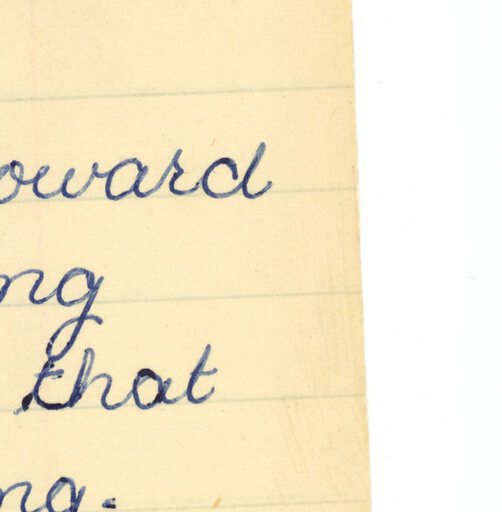 oward
ng
that
ng.